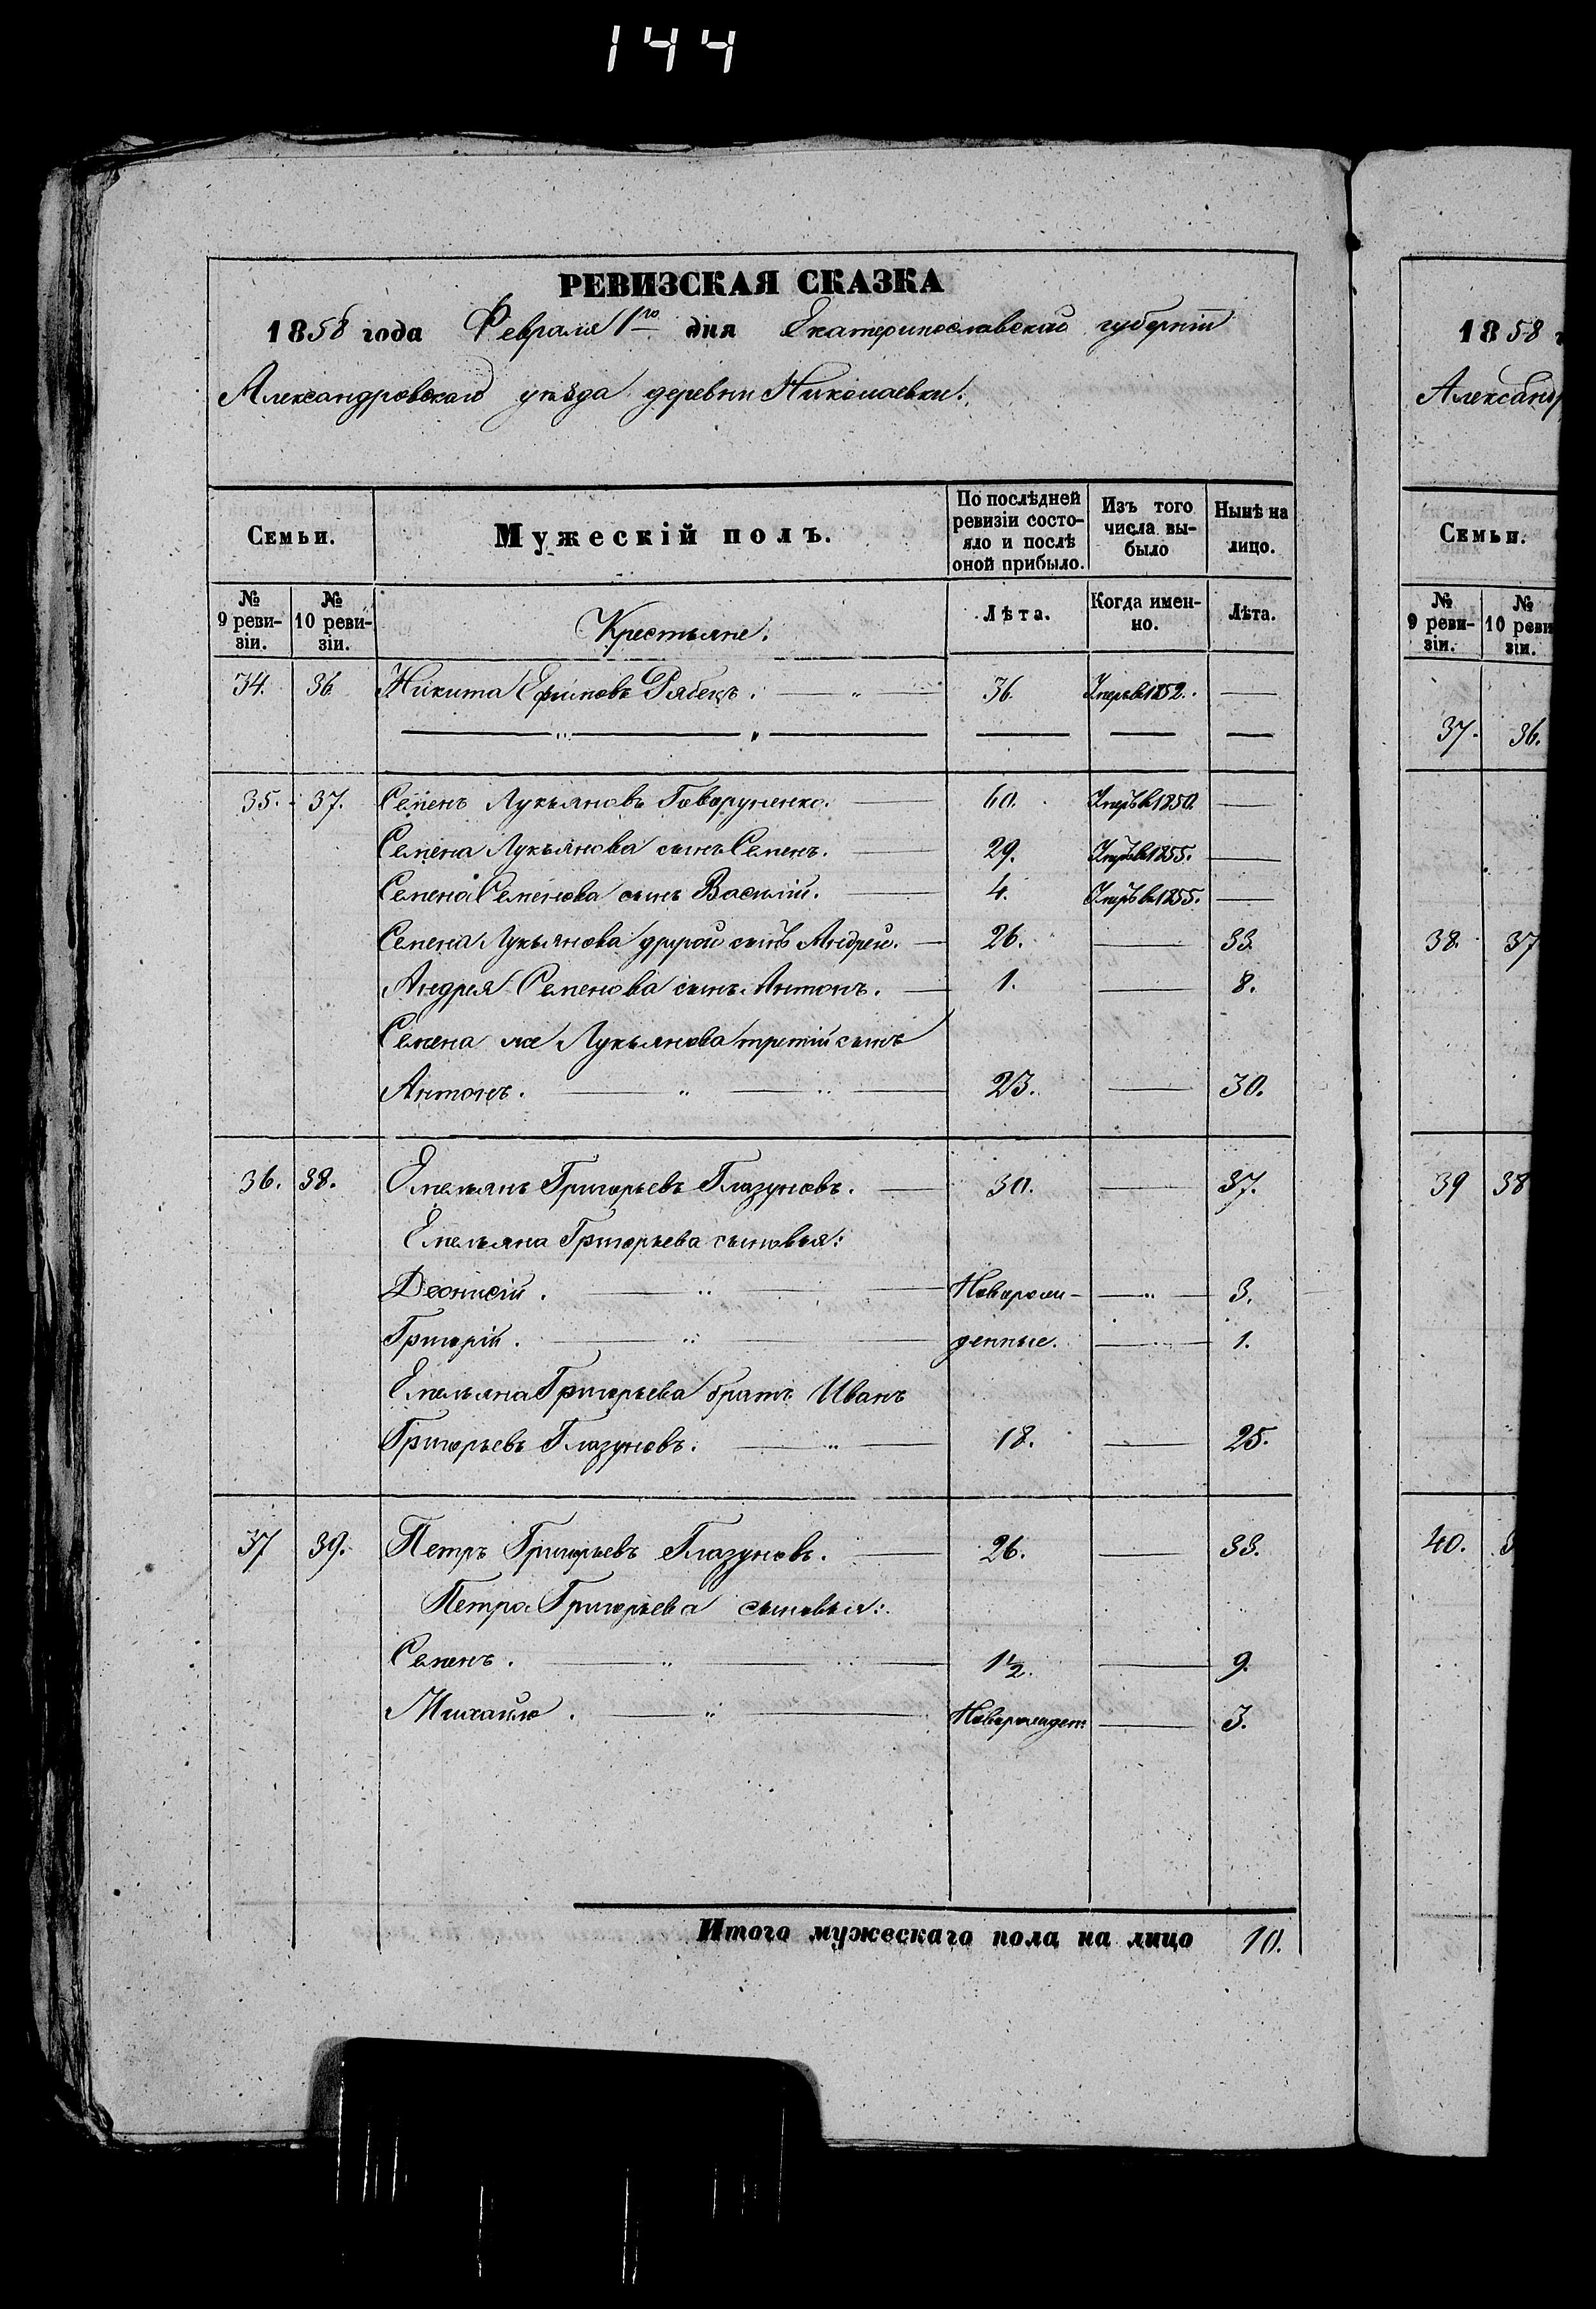 144
РЕВИЗСКАЯ СКАЗКА
1858 года Февраля 1го дня Екатеринославской губерніи
Александровскаго уѣзда деревни Николаевки.
Семьи. Мужескій полъ. По послѣдней ревизіи состояло и послѣ оной прибыло. Изъ того числа выбыло Нынѣ на лицо.
№ 9 ревизіи. № 10 ревизіи. Крестьяне. Лѣта. Когда именно. Лѣта.
34. 36. Никита Ефимовъ Рябецъ. 36. Умеръ въ 1852.
35. 37. Семенъ Лукьяновъ Говоруненко. 60. Умеръ въ 1850.
Семена Лукьянова сынъ Семенъ. 29. Умеръ въ 1855.
Семена Семенова сынъ Василій. 4. Умеръ въ 1855.
Семена Лукьянова другой сынъ Андрей. 26. 33.
Андрея Семенова сынъ Антонъ. 1. 8.
Семена же Лукьянова третій сынъ
Антонъ. 23. 30.
36. 38. Емельянъ Григорьевъ Глазуновъ. 30. 37.
Емельяна Григорьева сыновья:
Деонисій.Новорож- 3.
Григорій. денные. 1.
Емельяна Григорьева братъ Иванъ
Григорьевъ Глазуновъ. 18. 25.
37 39. Петръ Григорьевъ Глазуновъ. 26. 33.
Петра Григорьева сыновья:
Семенъ. 1½. 9.
Михайло. Новорожден 3.
Итого мужескаго пола на лицо 10.
1858 г
Александр
Семьи.
№ 9 ревизіи. № 10 реви зіи.
37. 36.
38. 37
39 38
40. 3